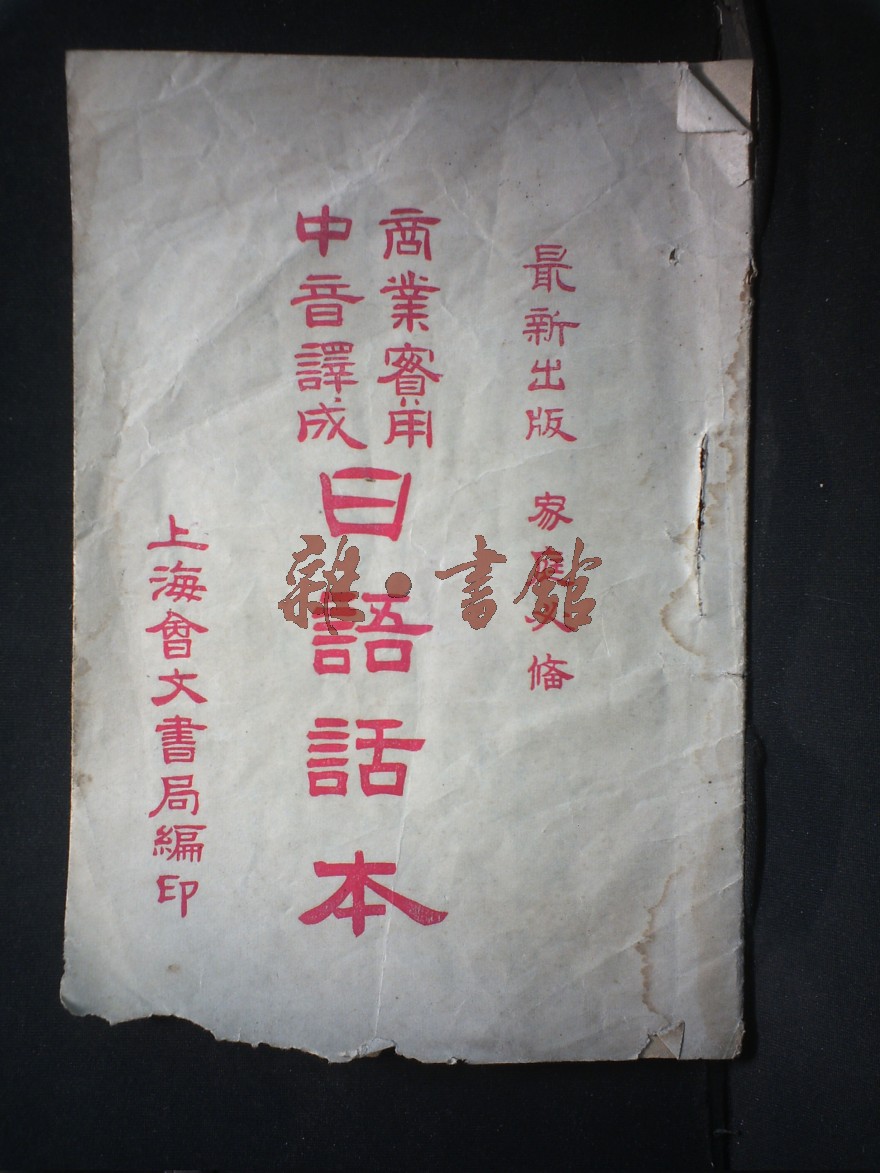 最新出版 家庭必備
商業實用
中音譯成
日語話本
上海會文書局編印
雜·書館